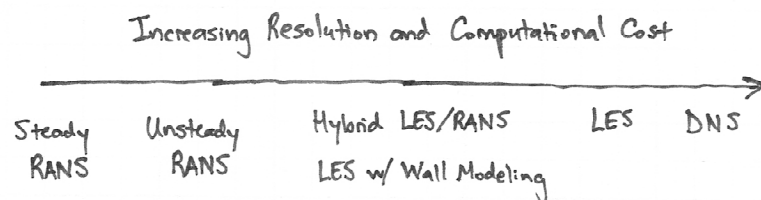 Increasing Resolution and Computational Cost
Steady RANS
Unsteady RANS
Hybrid LES/RANS
LES w/ Wall Modeling
LES
DNS